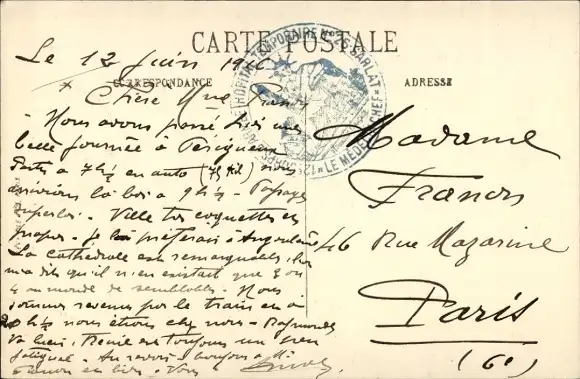 CARTE POSTALE
CORRESPONDANCE
ADRESSE
HOPITAL TEMPORAIRE N° SARLAT
LE MEDECIN CHEF
Le 12 Juin 1916
Chère Mme Francis
Nous avons passé une
belle journée à Périgueux
Partis à 7h½ en auto (75 Kil) nous
arrivions là bas à 9h½ - Paysage
superbe. Ville très coquette et
propre. je la préférerais à Angoulême
La cathédrale est remarquable,
m'a dit qu'il n'en existait que 3 ou
4 au monde de semblables. Nous
sommes revenus par le train et à
h½ nous étions chez nous - Raymonde
va bien, est toujours un peu
fatigué. Au revoir bonjour à Mr
Francis et bien à Vous
Madame
Francis
46 Rue Mazarine
Paris
(6e)